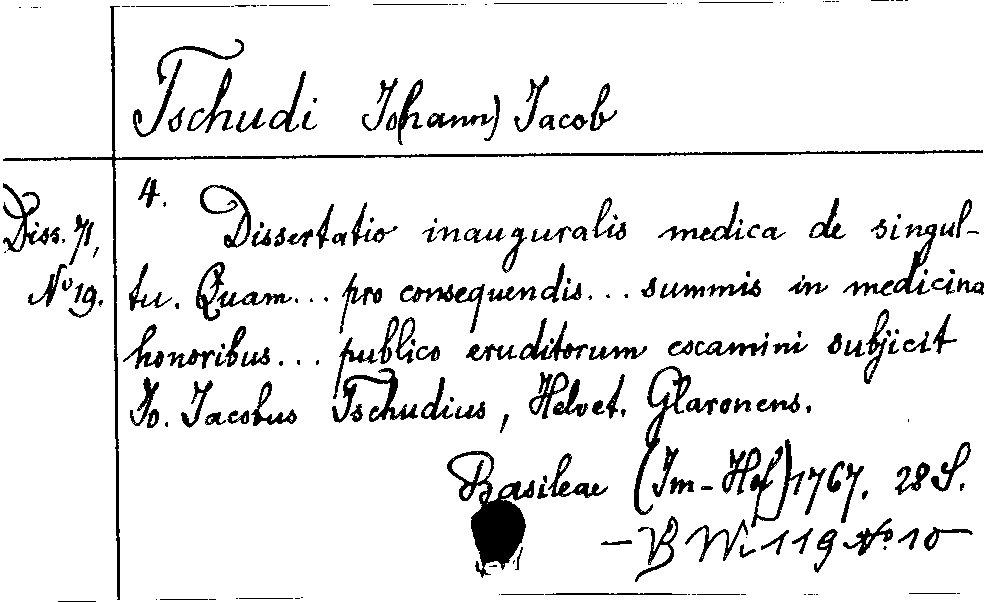 Tschudi Jo(hann) Jacob
Diss. 71,
No 19.
4.
Dissertatio inauguralis medica de singul-
tu. Quam... pro consequendis... summis in medicina
honoribus... publico eruditorum examini subjicit
Jo. Jacobus Tschudius, Helvet. Glaronens.
Basileae (Im-Hof) 1767. 28 S.
– B W 119 No 10